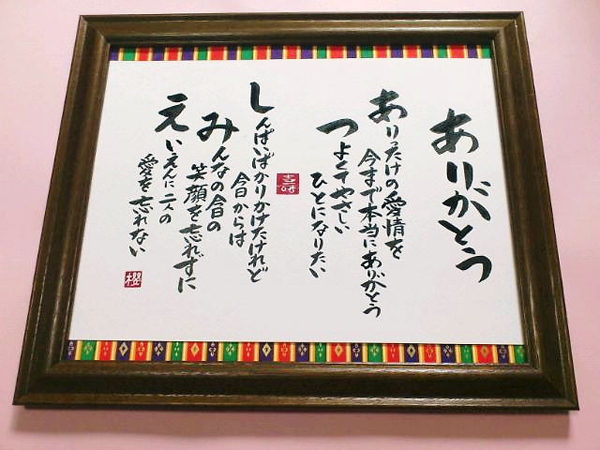 ありがとう
ありったけの愛情を
今まで本当にありがとう
つよくてやさしい
ひとになりたい
しんぱいばかりかけたけれど
今日からは
みんなの今日の
笑顔を忘れずに
えいえんに二人の
愛を忘れない
櫻